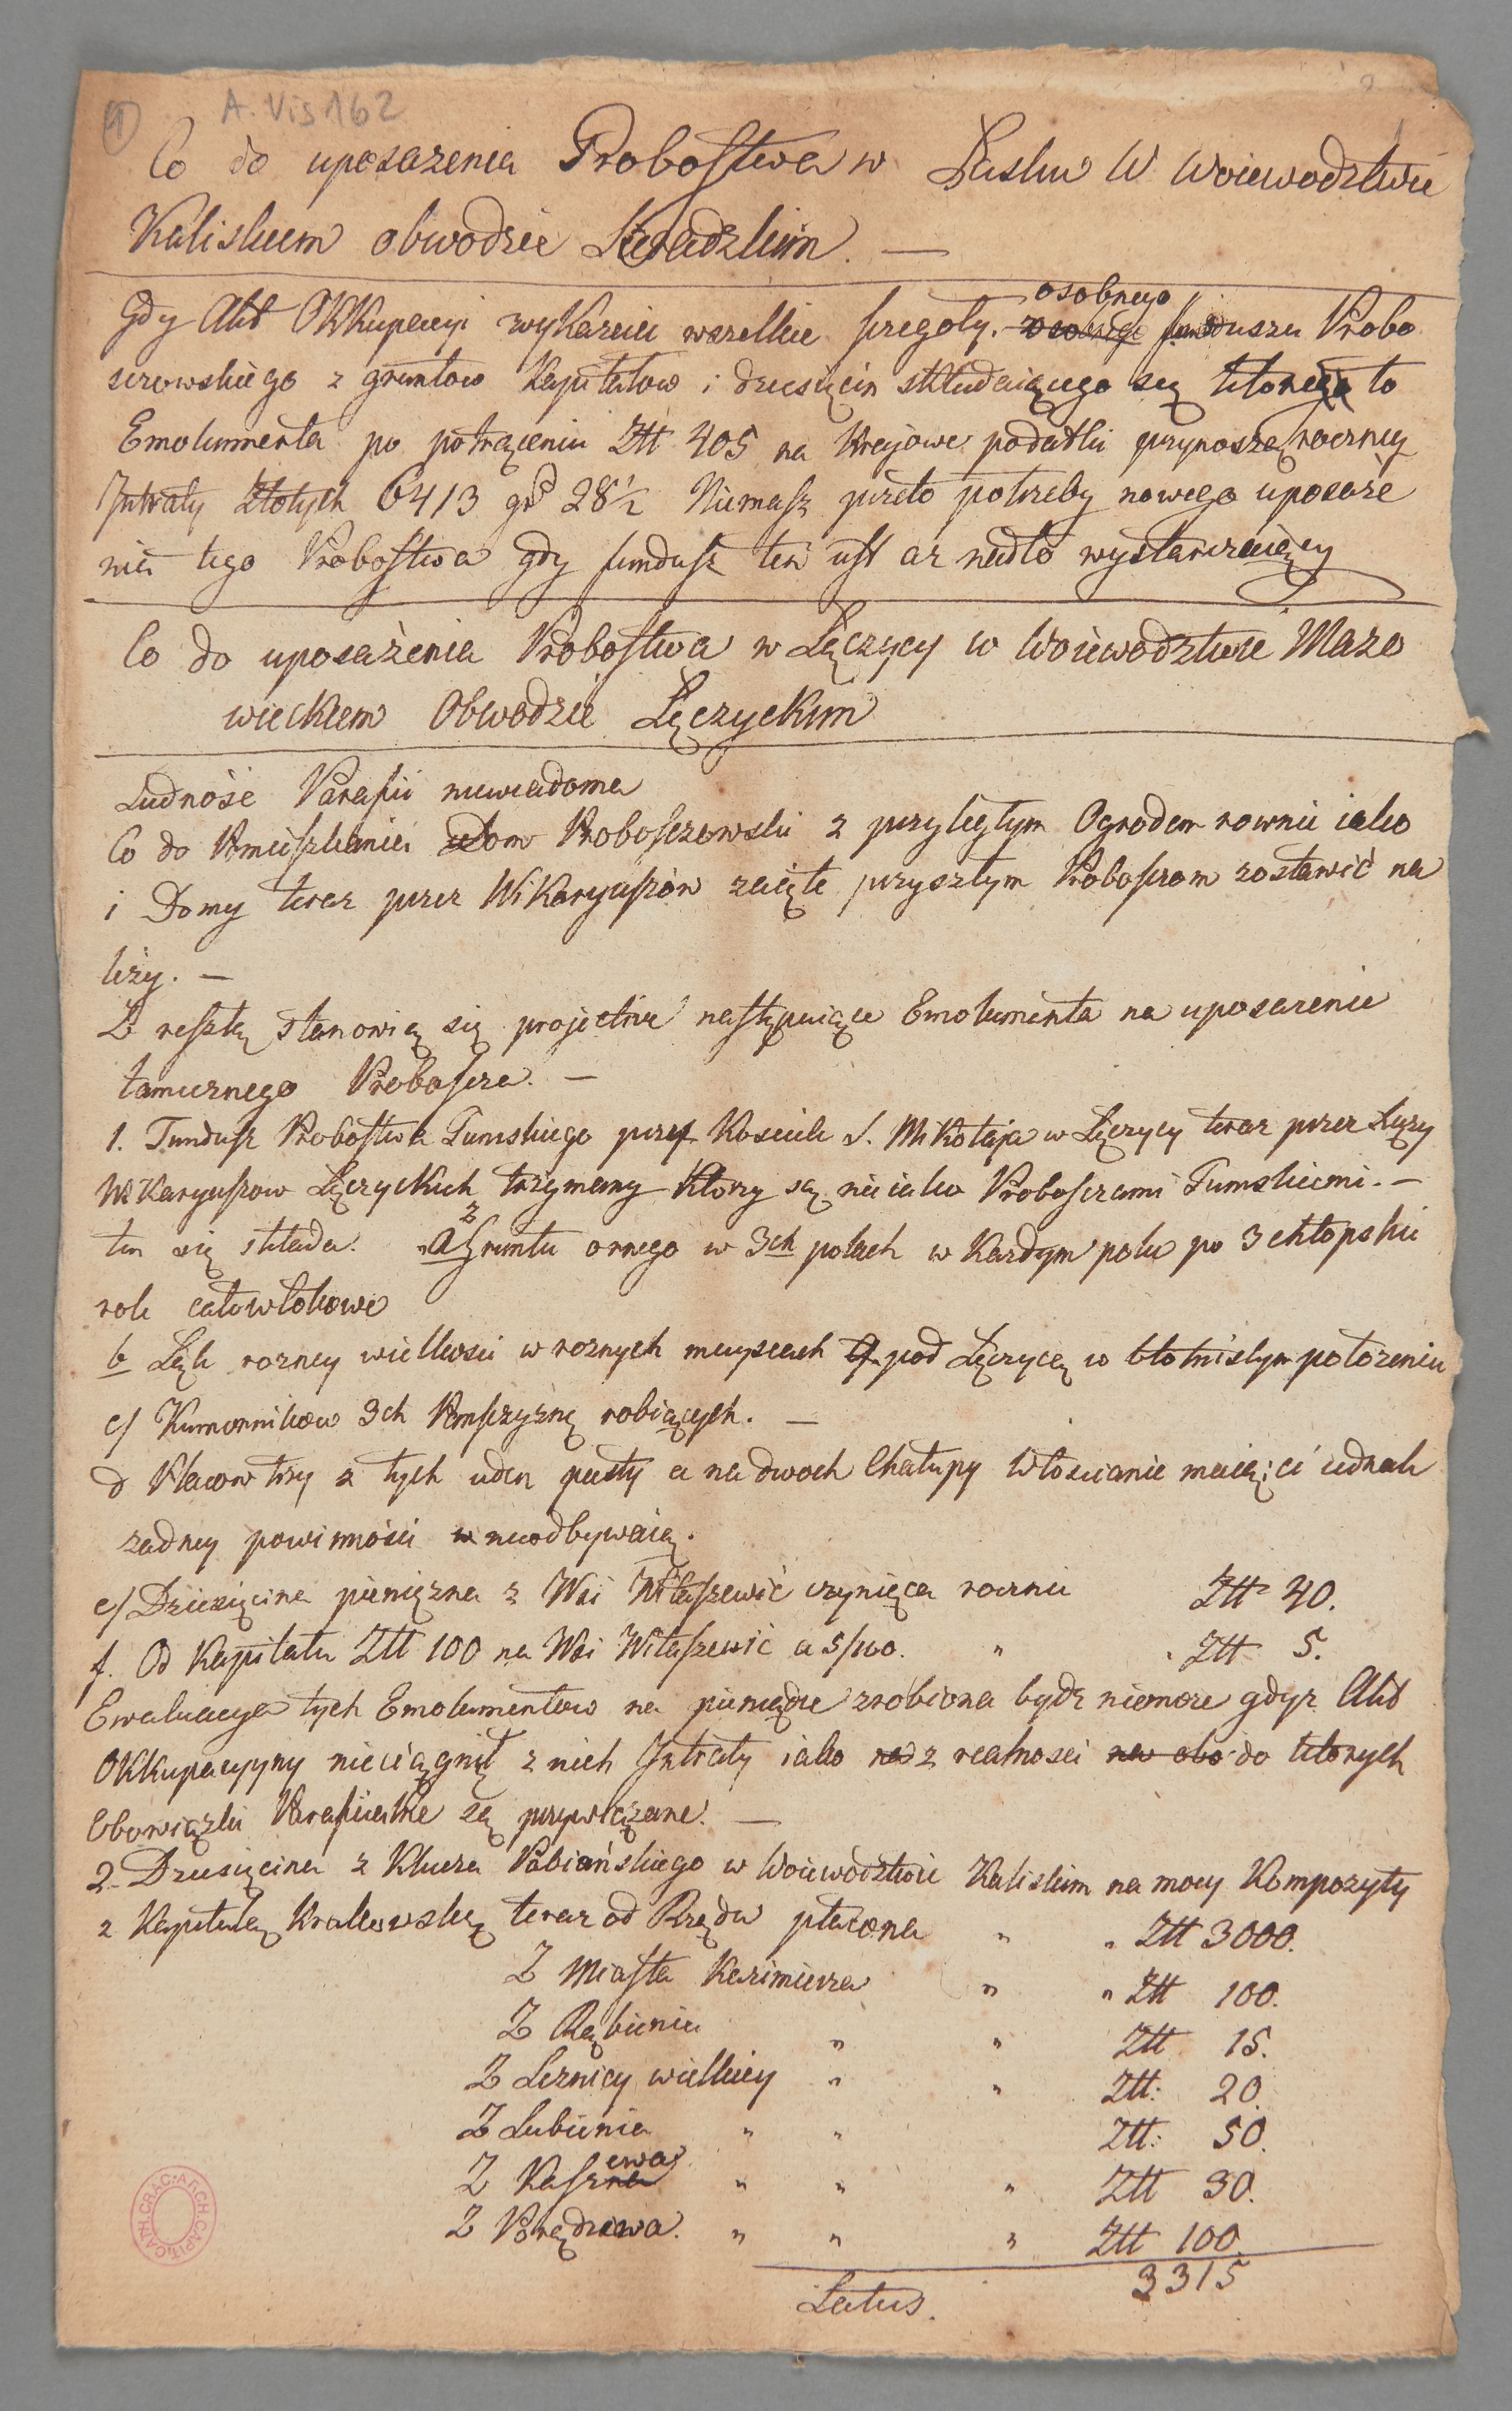 1 A. Vis 162
Co do uposarzenia Probostwa w Łasku W Woiewodztwie
Kaliskiem obwodzie Sieradzkim. —
Gdy Akt OKKupacyi wyKazuie wszelkie szegoły. osobnego funduszu Probo
szczowskiego z gruntow Kapitałow i dziesięcin składaiącego się ktorego to
Emolumenta po potrąceniu Złł 405 na Krajowe podatki przynoszą roczney
Intraty Złotych 6413 gr 28½ Niemasz przeto potrzeby nowego uposaże
nia tego Probostwa gdy fundusz ten iest aż nadto wystarczaiący
Co do uposażenia Probostwa w Łęczycy w Woiewodztwie Mazo
wieckiem Obwodzie Łęczyckim
Ludność Parafii niewiadoma
Co do Pomieszkania Dom Proboszczowski z przyległym Ogrodem rownie iako
i Domy teraz przez WiKaryuszów zaięte przyszłym Proboszczom zostawić na
leży. —
Z resztą stanowią się projective następuiące Emolumenta na uposarzenie
tamecznego Proboszcza. —
1. Fundusz Probostwa Tumskiego przy Kosciele S. MiKołaja w Łęczycy teraz przez Xięży
WiKaryuszow ŁęczycKich trzymany Ktorzy są nieiako Proboszczami Tumskiemi. —
ten się składa. a z Gruntu ornego w 3ch polach w Kazdym polu po 3 chłopskie
role całowłokowe
b Łąk rozney wielkosci w roznych mieyscach pod Łęczycą w błotnistym położeniu
c/ Kumornikow 3ch Pańszczyznę robiących. —
d Placow trzy z tych ieden pusty a na dwoch Chałupy Włoscianie maią; ci iednak
zadney powinności nieodbywaią.
e/ Dziesięcina pieniężna z Wsi Witaszewić czyniąca rocznie Złł 40.
f. Od Kapitału Złł 100 na Wsi Witaszewić a 5/100. " " Złł 5.
Ewaluacya tych Emolumentow na pieniądze zrobiona bydz niemoże gdyż Akt
OKKupacyiny nieciągnął z nich Intraty iako z realnosci do ktorych
Obowiązki Parafialne są przywiązane. —
2. Dziesięcina z Klucza Pabiańskiego w Woiewództwie Kaliskim na mocy Kompozyty
z Kapitułą Krakowską teraz od Rządu płacona " " Złł 3000.
Z Miasta Kazimierza " " Złł 100.
Z Rąbienia " " Złł 15.
Z Leznicy wielkiey " " Złł: 20.
Z Lubienia " " Złł: 50.
Z Kaszewa " " " Złł 30.
Z Prądzewa. " " " Złł 100.
Latus. 3315
CATH. CRAC. ARCH. CAPIT.